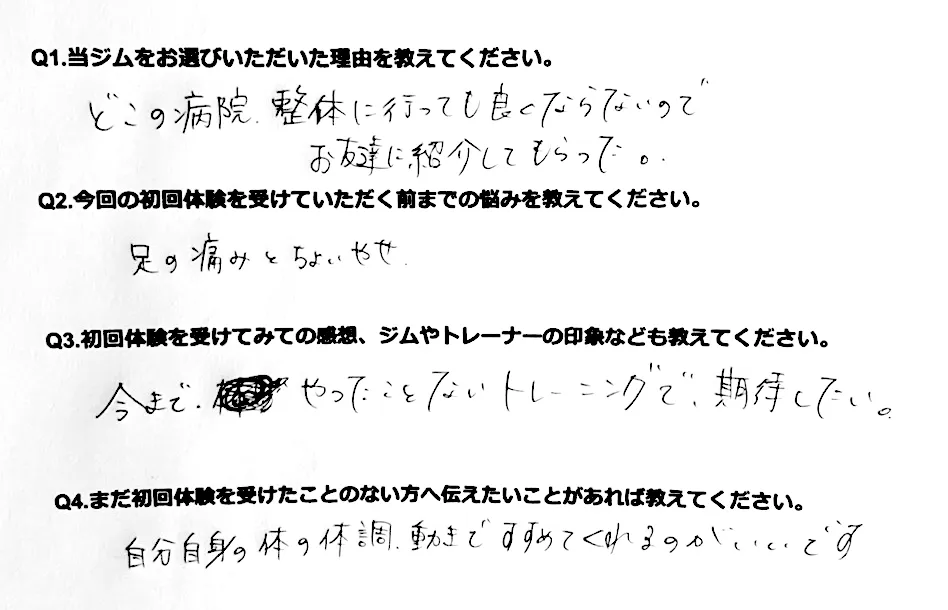 Q1.当ジムをお選びいただいた理由を教えてください。
どこの病院、整体に行っても良くならないので
お友達に紹介してもらった。
Q2.今回の初回体験を受けていただく前までの悩みを教えてください。
足の痛みとちょいやせ
Q3.初回体験を受けてみての感想、ジムやトレーナーの印象なども教えてください。
今まで、やったことないトレーニングで、期待したい。
Q4.まだ初回体験を受けたことのない方へ伝えたいことがあれば教えてください。
自分自身の体の体調、動きですすめてくれるのがいいです